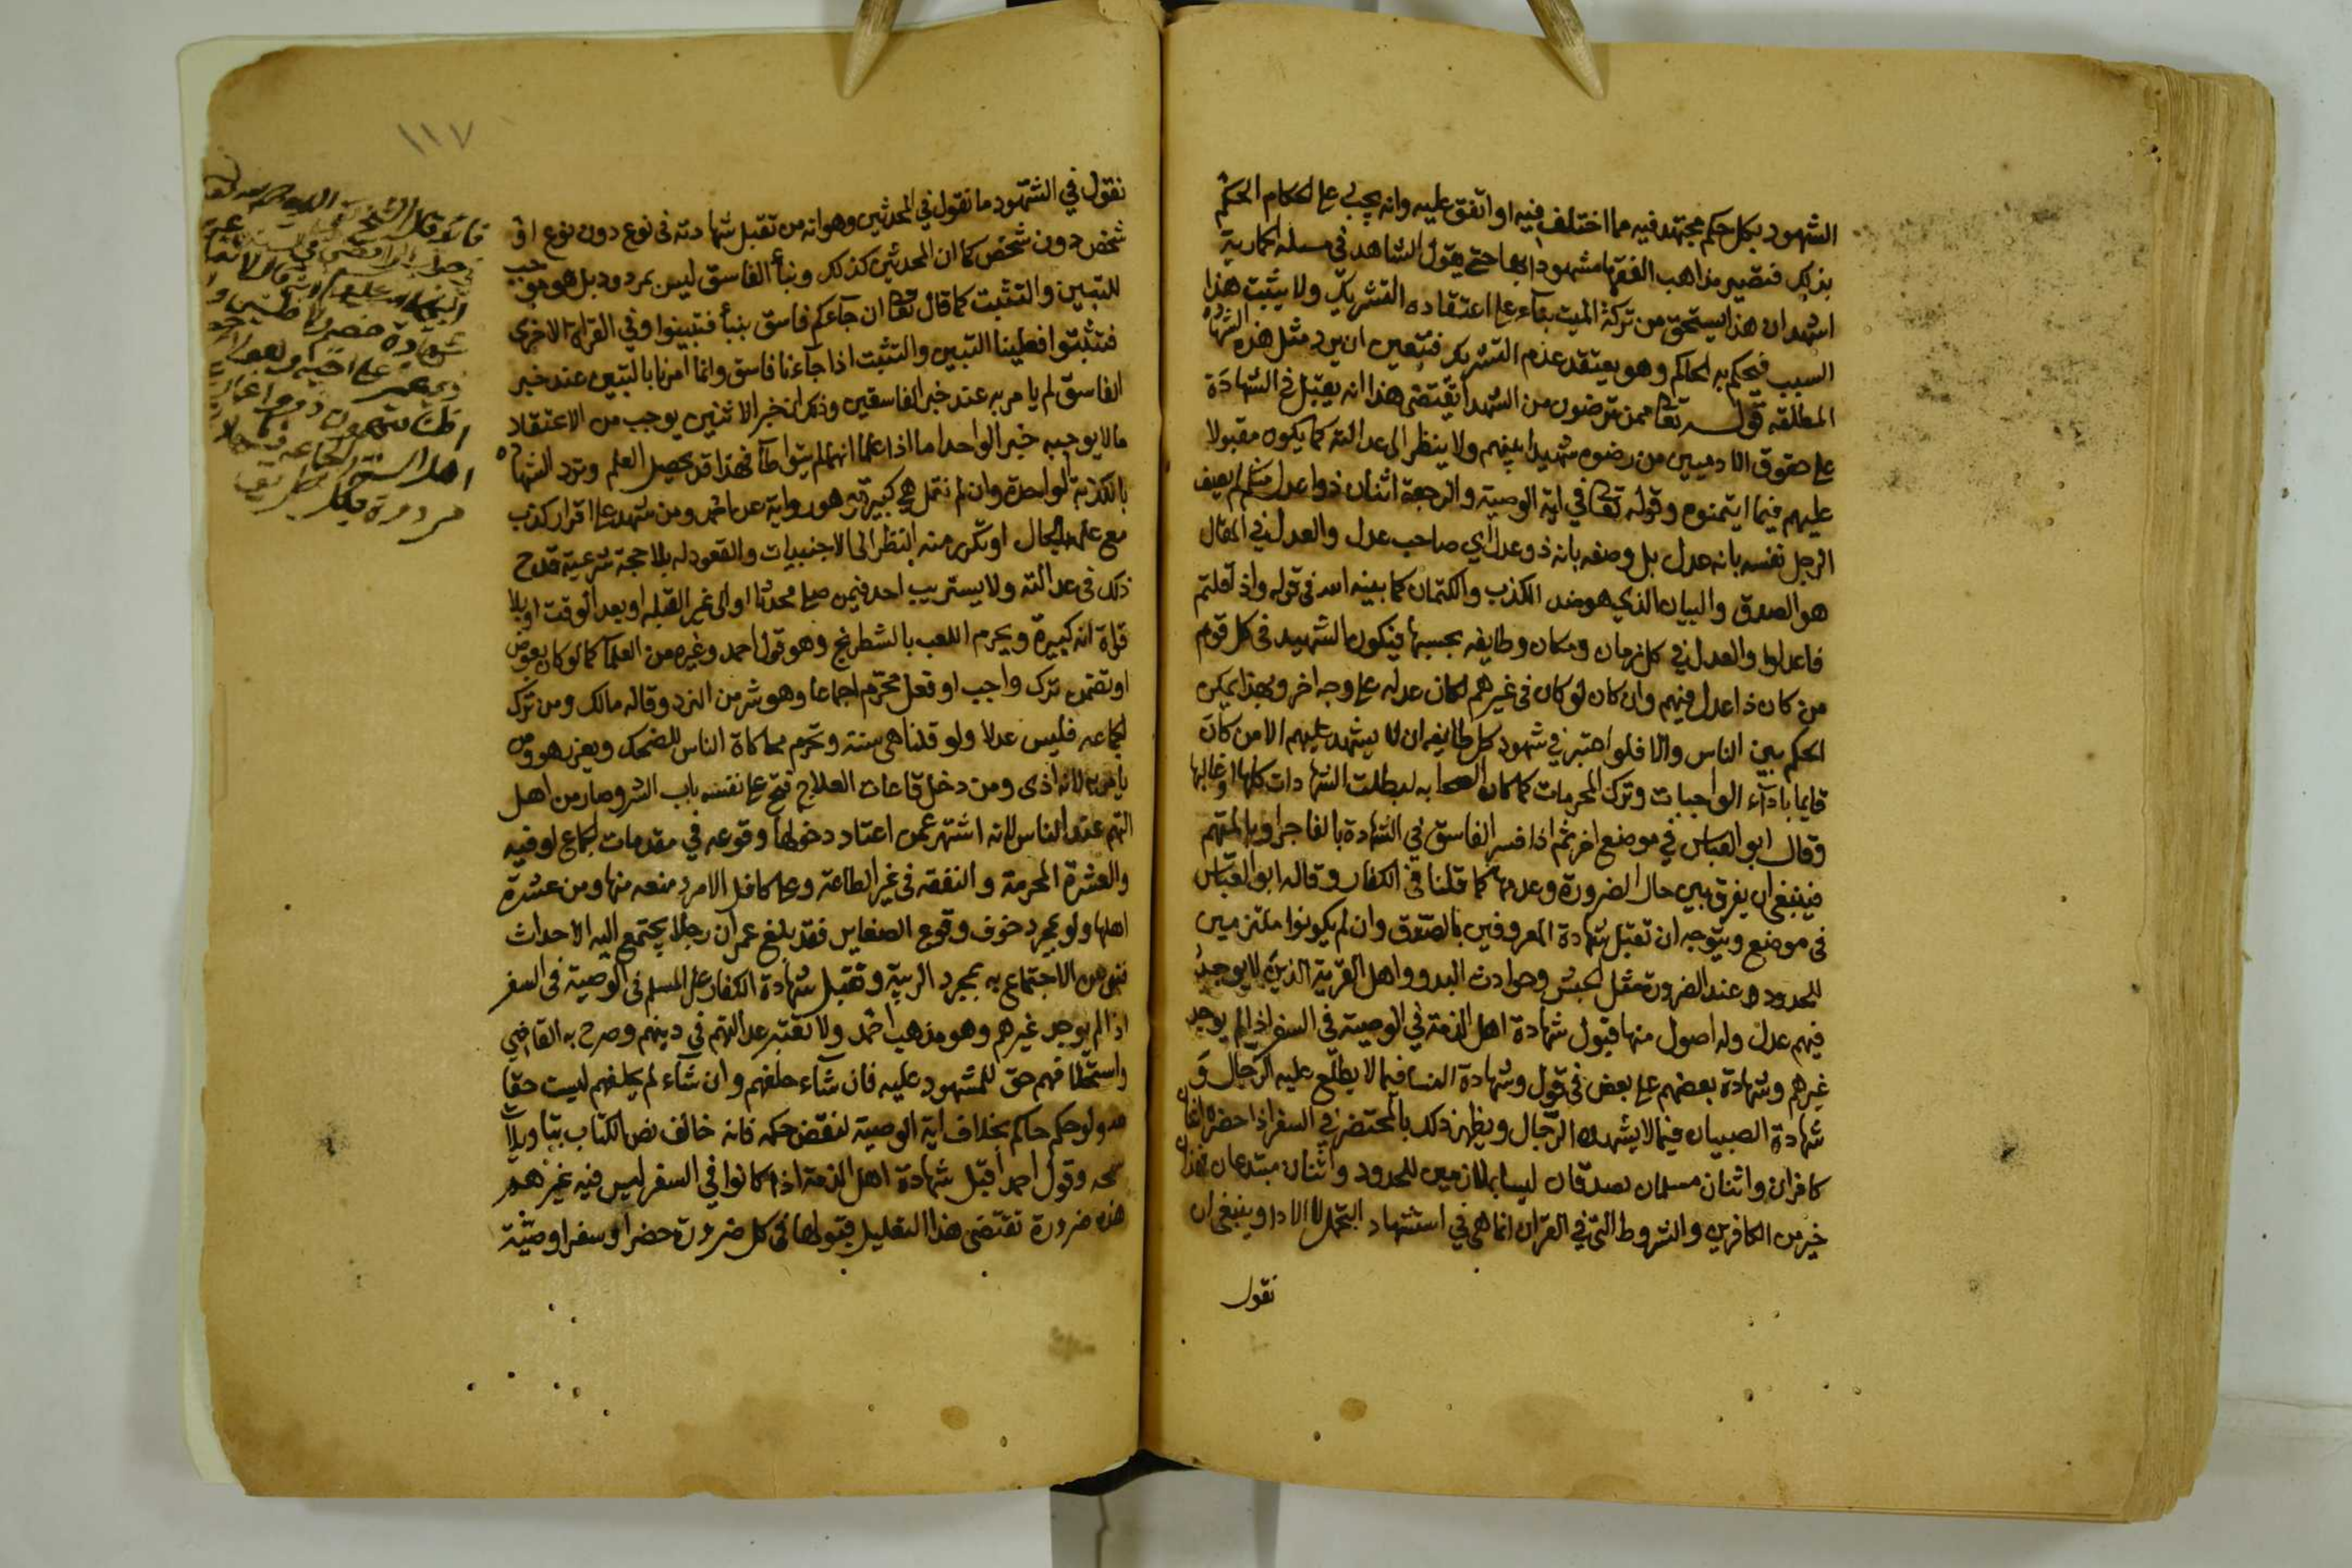 الشهود بكل حكم مجتهد فيه مما اختلف فيه او اتفق عليه وانه يجب على الحكام الحكم
بذلك فتصير مذاهب الفقها مشهودا بها حتى يقول الشاهد في مسله الحمارية
اشهد ان هذا يستحق من تركة الميت بناء على اعتقاده التشريك ولا يثبت هذا
السبب فيحكم به الحاكم وهو يعتقد عدم التشريك فتعين ان يرد مثل هذه الشهادة
المطلقه قوله تعا ممن ترضون من الشهدا يقتضي هذا انه يقبل في الشهادة
على حقوق الادميين من رضوه شهيدا بينهم ولا ينظر الى عدالته كما يكون مقبولا
عليهم فيما ايتمنوه وقوله تعا في اية الوصية والرجعة اثنان ذوا عدل منكم لم يصف
الرجل نفسه بانه عدل بل وصفه بانه ذو عدل اي صاحب عدل والعدل في المقال
هو الصدق والبيان الذي هو ضد الكذب والكتمان كما بينه الله في قوله واذا قلتم
فاعدلوا والعدل في كل زمان ومكان وطايفه بحسبها فيكون الشهيد في كل قوم
من كان ذا عدل فيهم وان كان لو كان في غيرهم لكان عدله على وجه اخر وبهذا يمكن
الحكم بين الناس والا فلو اعتبر في شهود كل طايفه ان لا يشهد عليهم الا من كان
قايما بادآء الواجبات وترك المحرمات كما كان الصحابه لبطلت الشهادات كلها او غالبها
وقال ابو العباس في موضع اخر ثم اذا فسر الفاسق في الشهادة بالفاجر او بالمتهم
فينبغي ان يفرق بين حال الضرورة وعدمها كما قلنا في الكفار وقال ابو العباس
في موضع ويتوجه ان تقبل شهادة المعروفين بالصدق وان لم يكونوا ملتزمين
للحدود عند الضرورة مثل الجيش وحوادث البدو واهل القرية الذين لا يوجد
فيهم عدل وله اصول منها قبول شهادة اهل الذمة في الوصية في السفر اذا لم يوجد
غيرهم وشهادة بعضهم على بعض في قول وشهادة النسا فيما لا يطلع عليه الرجال و
شهادة الصبيان فيما لا يشهده الرجال ويظهر ذلك بالمحتضر في السفر اذا حضره اثنان
كافران واثنان مسلمان يصدقان ليسا بملازمين للحدود واثنان مبتدعان فهذان
خير من الكافرين والشروط التي في القران انما هي في استشهاد التحمل لا الادا وينبغي ان
نقول
١١٧
نقول في الشهود ما نقول في المحدثين وهو انه من تقبل شهادته في نوع دون نوع او
شخص دون شخص كما ان المحدثين كذلك ونبأ الفاسق ليس بمردود بل هو موجب
للتبين والتثبت كما قال تعا ان جآءكم فاسق بنبأ فتبينوا وفي القراة الاخرى
فتثبتوا فعلينا التبين والتثبت اذا جآءنا فاسق وانما امرنا بالتبين عند خبر
الفاسق لم يامر به عند خبر الفاسقين وذلك ان خبر الاثنين يوجب من الاعتقاد
ما لا يوجبه خبر الواحد اما اذا علما انهما لم يتواطآ فهذا قد يحصل العلم وترد الشهادة
بالكذبة الواحدة وان لم نقل هي كبيرة وهو رواية عن احمد ومن شهد على اقرار كذب
مع علمه بالحال او تكرر منه النظر الى الاجنبيات والقعود له بلا حجة شرعية قدح
ذلك في عدالته ولا يستريب احد فيمن صلى محدثا او الى غير القبله او بعد الوقت او بلا
قراة انه كبيرة ويحرم اللعب بالشطرنج وهو قول احمد وغيره من العلمآ كما لو كان بعوض
او تضمن ترك واجب او فعل محرم اجماعا وهو شر من النرد وقاله مالك ومن ترك
الجماعه فليس عدلا ولو قلنا هي سنة وتحرم محاكاة الناس للضحك ويعزر هو ومن
يامره لانه اذى ومن دخل قاعات العلاج فتح على نفسه باب الشر وصار من اهل
التهم عند الناس لانه اشتهر عمن اعتاد دخولها وقوعه في مقدمات الجماع او فيه
والعشرة المحرمة والنفقه في غير الطاعة وعلى كافل الامرد منعه منها ومن عشرة
اهلها ولو بمجرد خوف وقوع الصغاير فقد بلغ عمر ان رجلا يجتمع اليه الاحداث
فنهى عن الاجتماع به بمجرد الريبة وتقبل شهادة الكفار على المسلم في الوصية في السفر
اذا لم يوجد غيرهم وهو مذهب احمد ولا تعتبر عدالتهم في دينهم وصرح به القاضي
واستحلافهم حق للمشهود عليه فان شآء حلفهم وان شآء لم يحلفهم ليست حقا
لله ولو حكم حاكم بخلاف اية الوصية لنقض حكمه فانه خالف نص الكتاب بتاويلات
سمجه وقول احمد أقبل شهادة اهل الذمة اذا كانوا في السفر ليس فيه غيرهم
هذه ضرورة تقتضي هذا التعليل قبولها في كل ضرورة حضرا وسفرا وصيّة
قال الشيخ
شهادة خصم ولا ظنين ولا
اهل السنة والجماعه
مردودة